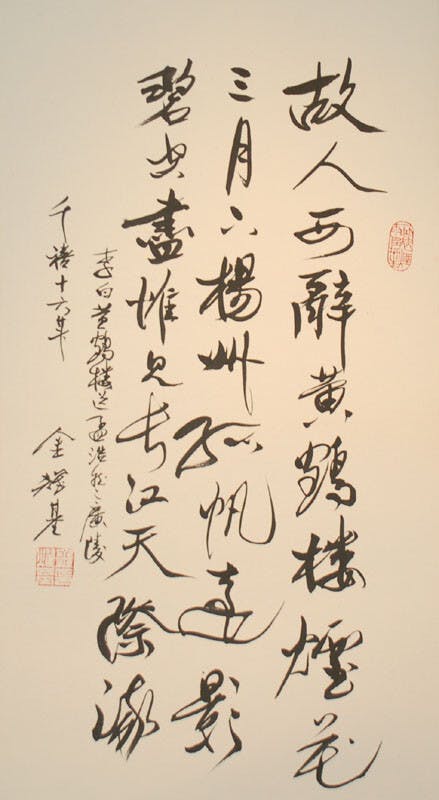 故人西辭黄鶴楼煙花
三月下楊州孤帆遠影
碧空盡惟見長江天際流
李白黄鶴楼送孟浩然之廣陵
千禧十六年 金耀基